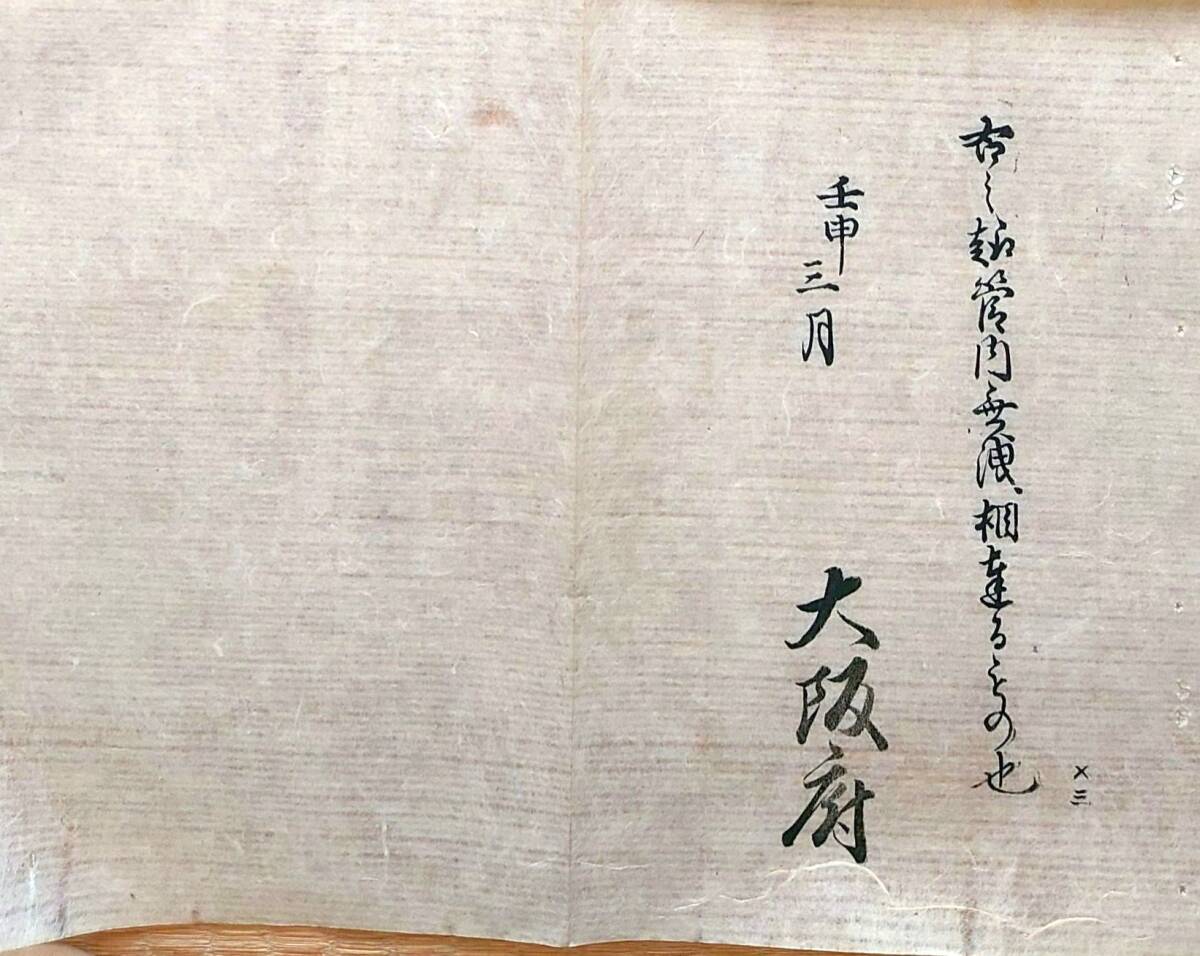 右之趣管内無洩相達るもの也
×三
壬申三月
大阪府